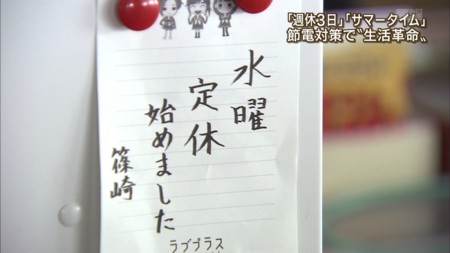 「週休3日」「サマータイム」
節電対策で〝生活革命〟
水曜
定休
始めました
篠崎
ラブプラス